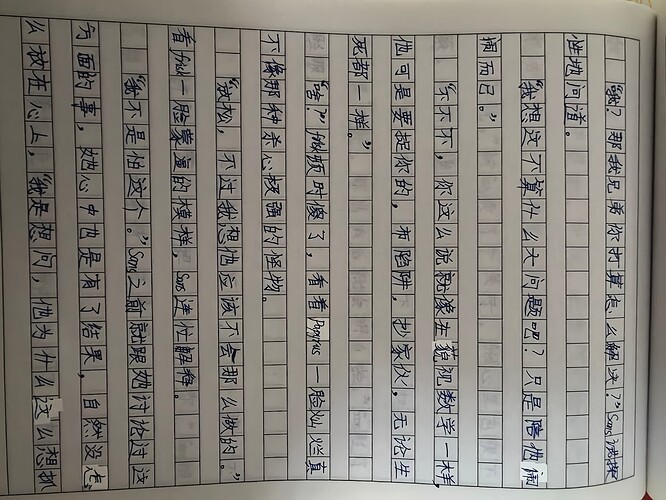 “哦？那我兄弟你打算怎么解决？”Sans试探
性地问道。
“我想这不算什么大问题吧？只是陪他闹
桶而已。”
“不不不，你这么说就像在藐视数学一样，
他可是要捉你的，布陷阱，抄家伙，无论生
死都一样。”
“啥？”frisk顿时傻了，看着Papyrus一脸灿烂真
不像那种杀心极强的怪物。
“放松，不过我想他应该不会那么做的。”
看frisk一脸蒙逼的模样，sans连忙解释。
“我不是怕这个。”Sans之前就跟她讨论过这
方面的事，她心中也是有了结果，自然没怎
么放在心上，“我是想问，他为什么这么想抓